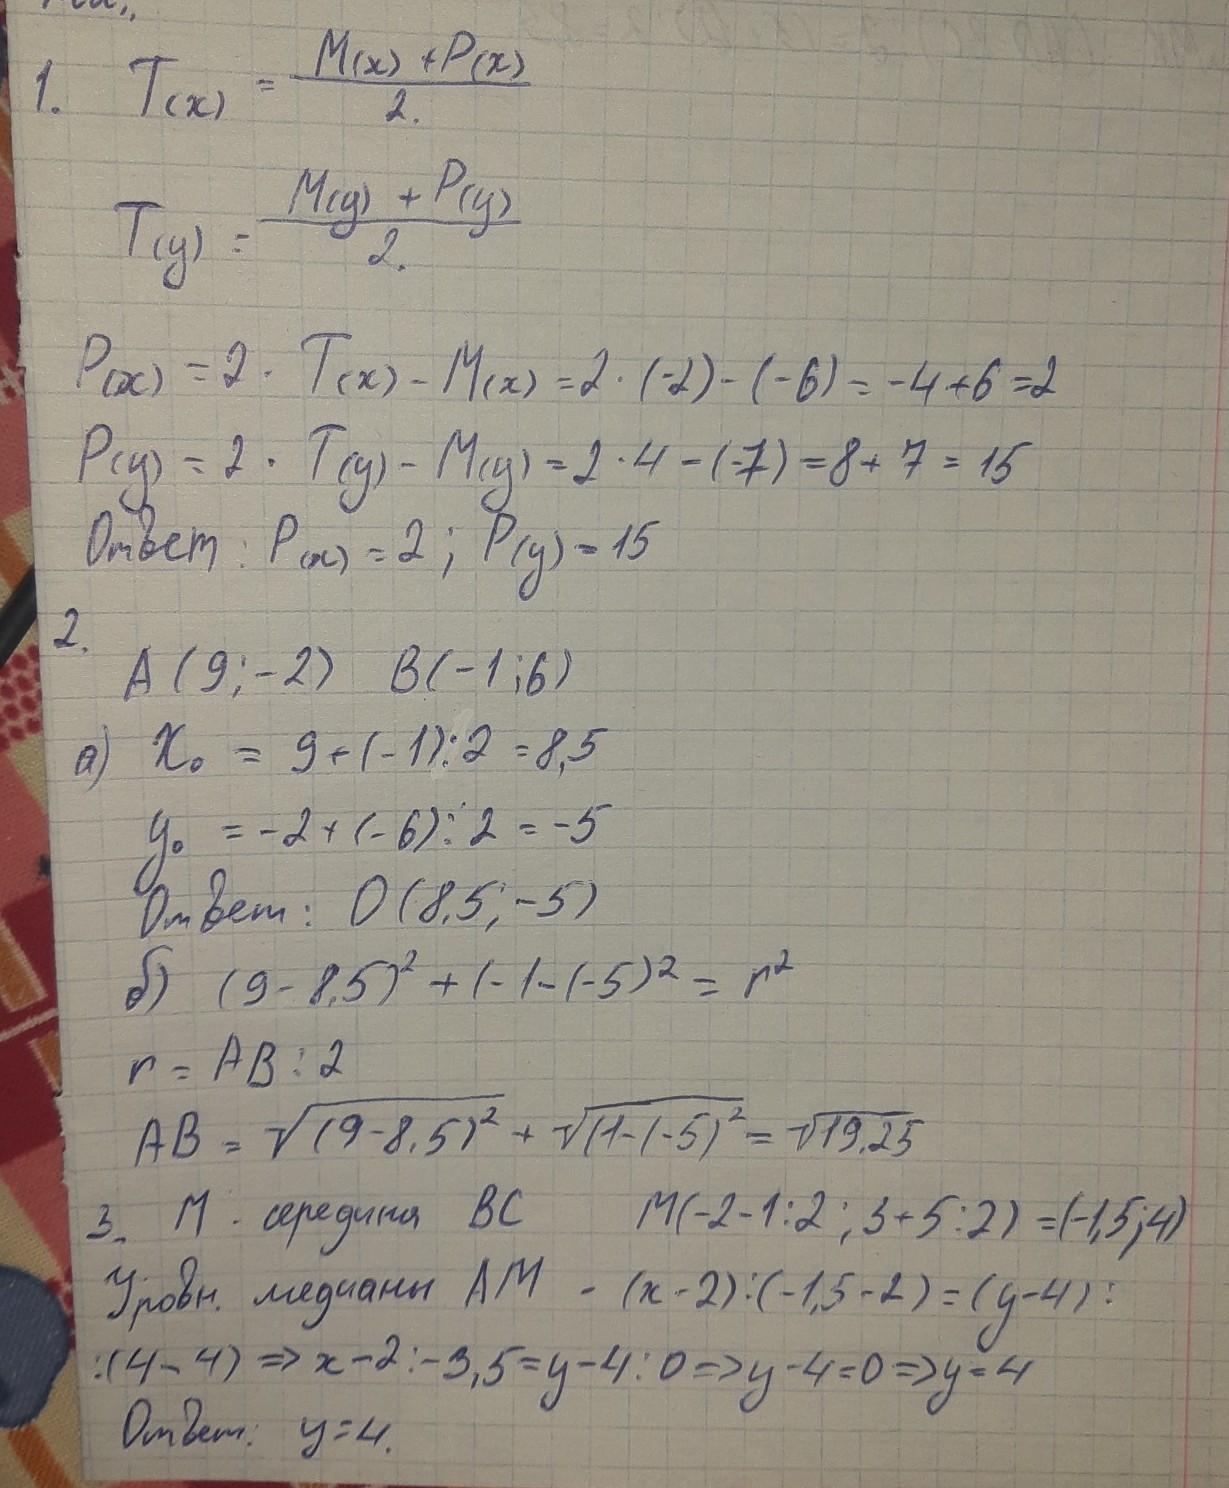 1. T(x) = (M(x) + P(x)) / 2.
T(y) = (M(y) + P(y)) / 2.
P(x) = 2 · T(x) - M(x) = 2 · (-2) - (-6) = -4+6 =2
P(y) = 2 · T(y) - M(y) = 2 · 4 - (-7) = 8+ 7 = 15
Ответ : P(x) = 2 ; P(y) = 15
2.
A (9; -2) B(-1; 6)
а) x₀ = 9 + (-1) : 2 = 8,5
y₀ = -2 + (-6) : 2 = -5
Ответ : O (8,5; -5)
б) (9 - 8,5)² + (-1 - (-5)² = r²
r = AB : 2
AB = √(9-8,5)² + √(1-(-5)² = √19,25
3. M - середина BC M(-2-1:2 ; 3+5:2) = (-1,5; 4)
Уровн. медианы AM - (x-2):(-1,5-2) = (y-4) :
:(4-4) => x-2:-3,5 = y-4:0 => y-4=0 => y=4
Ответ: y=4.